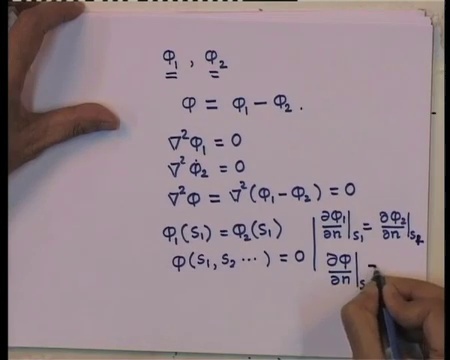 φ₁ , φ₂
φ = φ₁ − φ₂ .
∇²φ₁ = 0
∇²φ₂ = 0
∇²φ = ∇²(φ₁ − φ₂) = 0
φ₁(S₁) = φ₂(S₁) | ∂φ₁/∂n |S₁ = ∂φ₂/∂n |S
φ(S₁, S₂ ···) = 0 | ∂φ/∂n |S